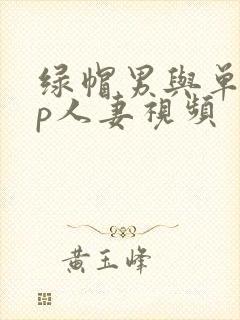 绿帽男與单
p人妻視頻
黄玉峰